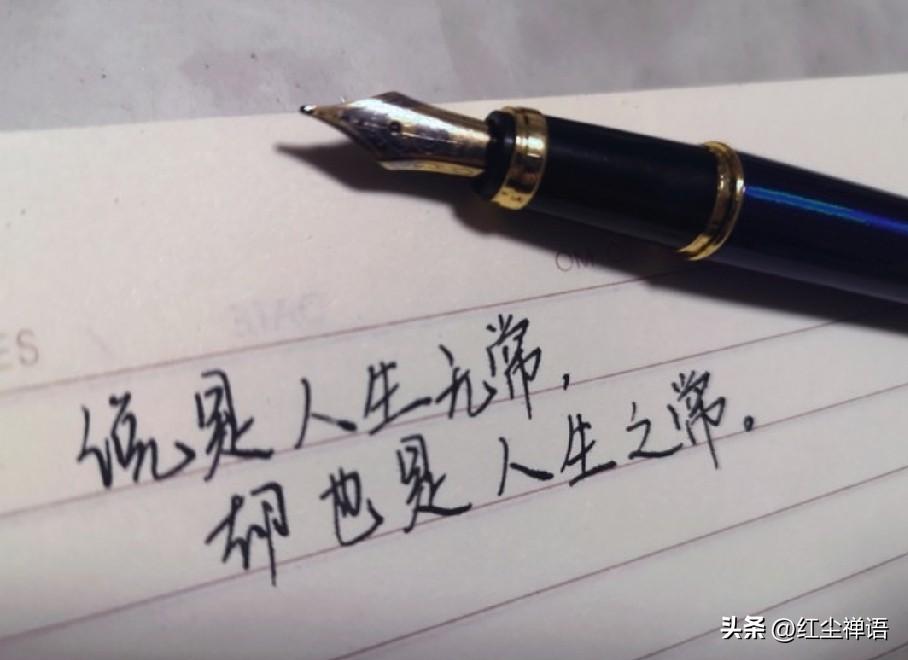 ES
说是人生无常，
却也是人生之常。
头条 @红尘禅语